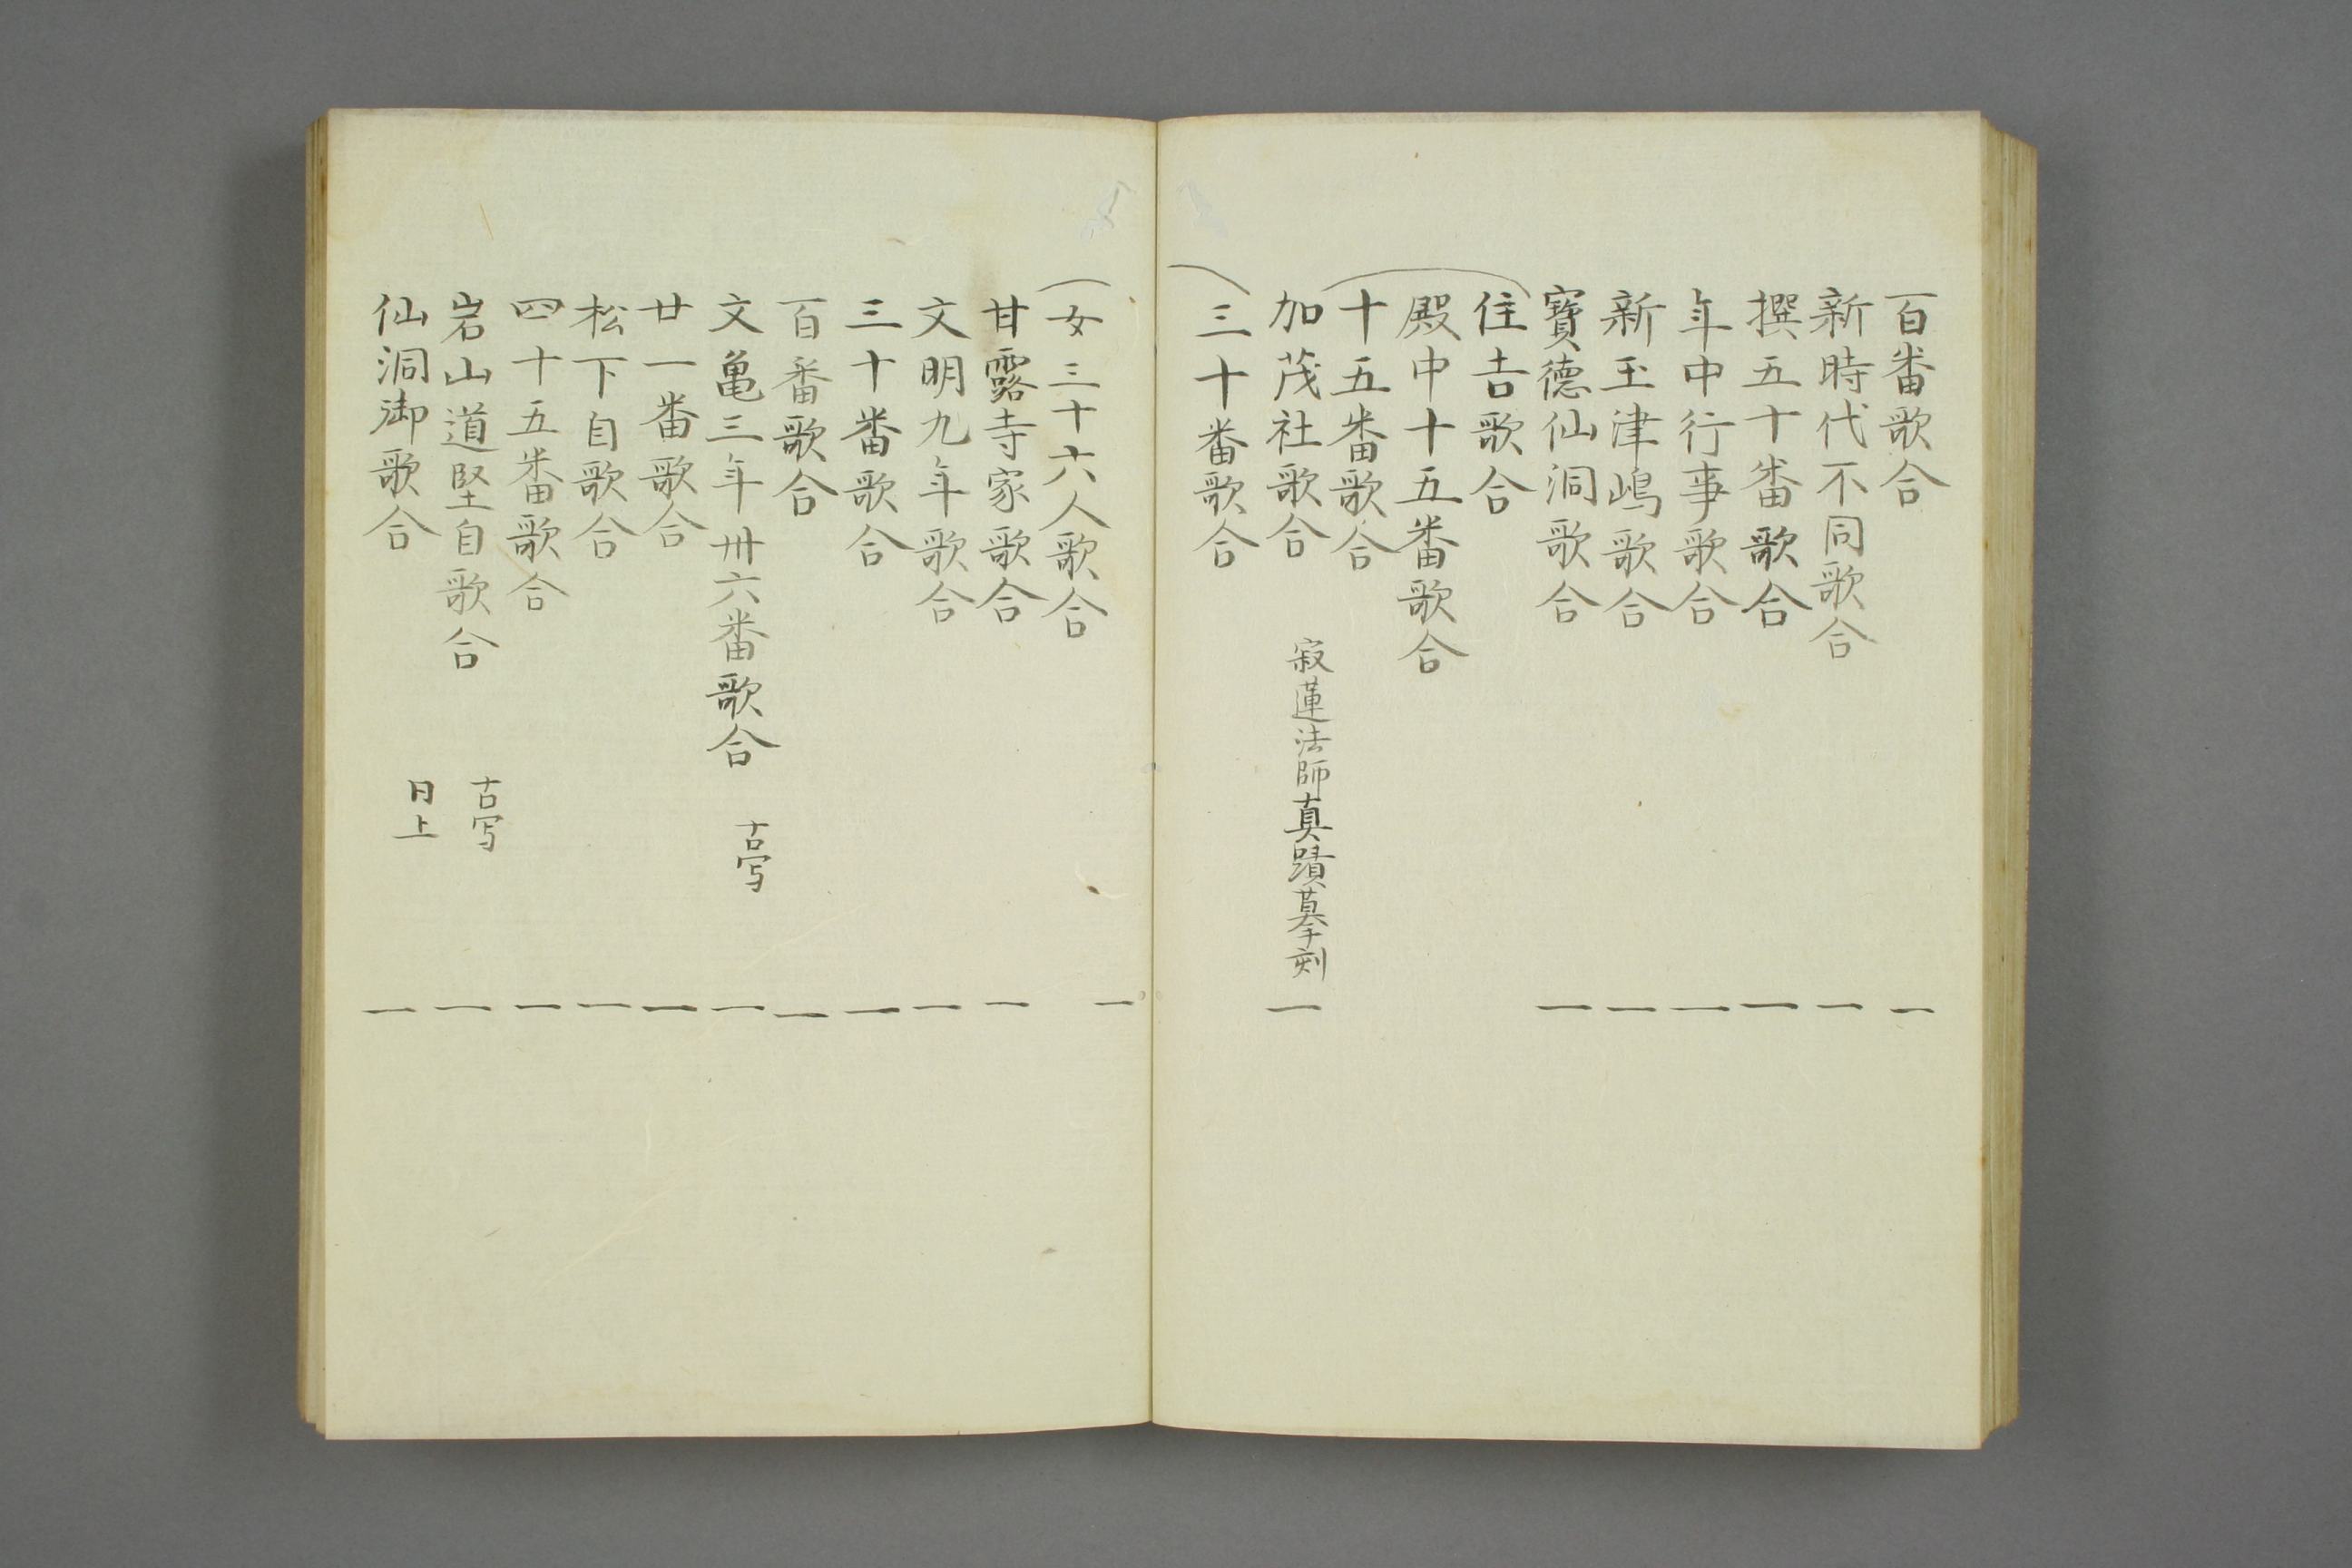 百番歌合 一
新時代不同歌合 一
撰五十番歌合 一
年中行事歌合 一
新玉津嶋歌合 一
寶徳仙洞歌合 一
住吉歌合
殿中十五番歌合
十五番歌合
加茂社歌合 寂蓮法師真蹟摹刻 一
三十番歌合
女三十六人歌合 一
甘露寺家歌合 一
文明九年歌合 一
三十番歌合 一
百番歌合 一
文亀三年卅六番歌合 古写 一
廿一番歌合 一
松下自歌合 一
四十五番歌合 一
岩山道堅自歌合 古写 一
仙洞御歌合 日上 一